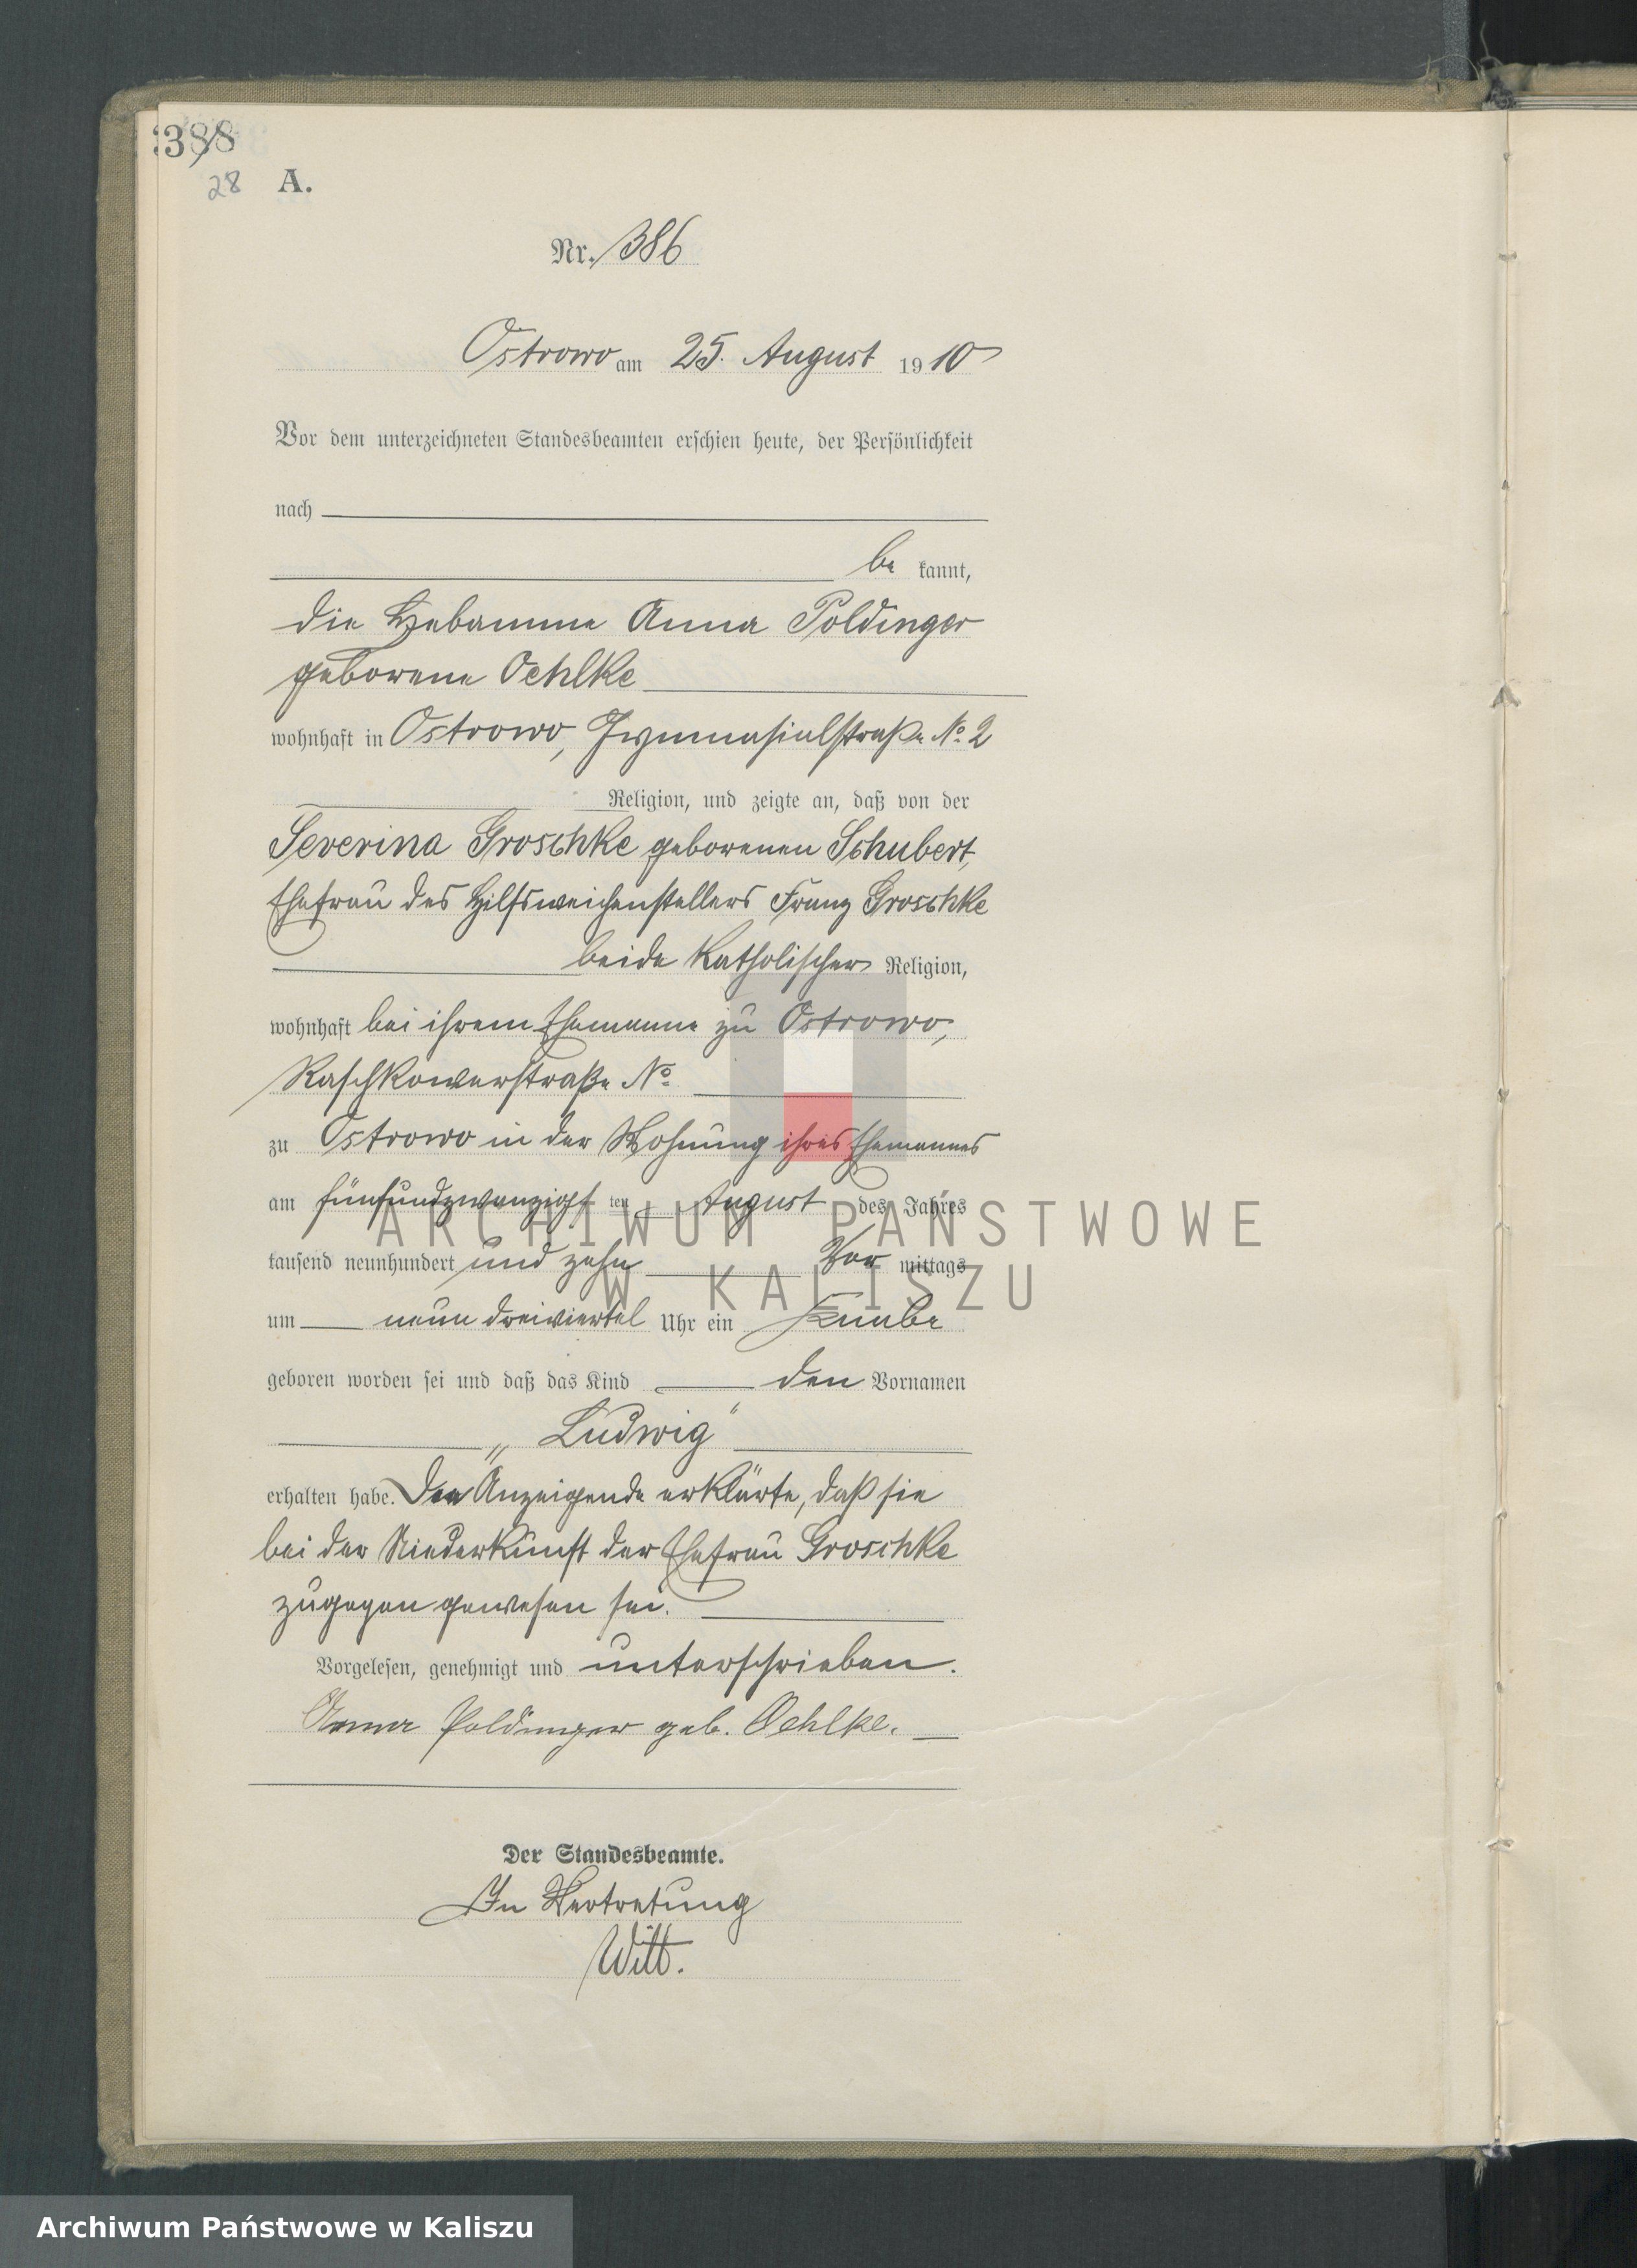 388
28 A.
Nr. 386
Ostrowo am 25. August 1910
Vor dem unterzeichneten Standesbeamten erschien heute, der Persönlichkeit
nach
be kannt,
die Hebamme Anna Poldinger
geborene Oehlke
wohnhaft in Ostrowo, Gymnasialstraße No. 2
Religion, und zeigte an, daß von der
Severina Groschke geborenen Schubert,
Ehefrau des Hilfsweichenstellers Franz Groschke
beide katholischer Religion,
wohnhaft bei ihrem Ehemanne zu Ostrowo,
Raschkowerstraße No.
zu Ostrowo in der Wohnung ihres Ehemannes
am fünfundzwanzigsten August des Jahres
ARCHIWUM PAŃSTWOWE
tausend neunhundert und zehn Vor mittags
W KALISZU
um neun dreiviertel Uhr ein Knabe
geboren worden sei und daß das Kind den Vornamen
„Ludwig“
erhalten habe. Die Anzeigende erklärte, daß sie
bei der Niederkunft der Ehefrau Groschke
zugegen gewesen sei.
Vorgelesen, genehmigt und unterschrieben.
Anna Poldinger geb. Oehlke.
Der Standesbeamte.
In Vertretung
Witt.
Archiwum Państwowe w Kaliszu